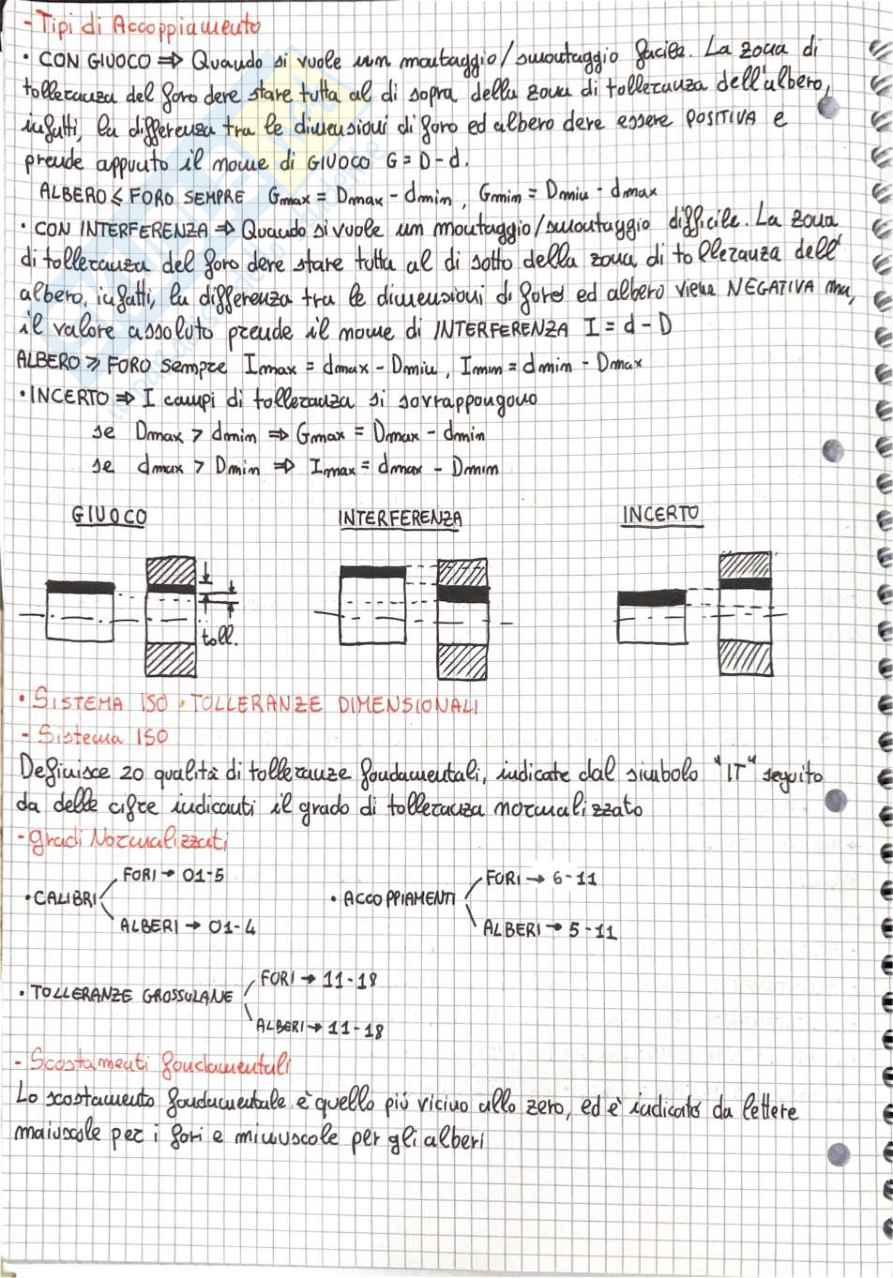 - Tipi di Accoppiamento
• CON GIUOCO ⇒ Quando si vuole un montaggio/smontaggio facile. La zona di
tolleranza del foro deve stare tutta al di sopra della zona di tolleranza dell'albero,
infatti, la differenza tra le dimensioni di foro ed albero deve essere POSITIVA e
prende appunto il nome di GIUOCO G = D - d.
ALBERO ≤ FORO SEMPRE Gmax = Dmax - dmin, Gmin = Dmin - dmax
• CON INTERFERENZA ⇒ Quando si vuole un montaggio/smontaggio difficile. La zona
di tolleranza del foro deve stare tutta al di sotto della zona di tolleranza dell'
albero, infatti, la differenza tra le dimensioni di foro ed albero viene NEGATIVA ma,
il valore assoluto prende il nome di INTERFERENZA I = d - D
ALBERO ≥ FORO sempre Imax = dmax - Dmin, Imin = dmin - Dmax
• INCERTO ⇒ I campi di tolleranza si sovrappongono
se Dmax > dmin ⇒ Gmax = Dmax - dmin
se dmax > Dmin ⇒ Imax = dmax - Dmin
GIUOCO INTERFERENZA INCERTO
toll.
• SISTEMA ISO, TOLLERANZE DIMENSIONALI
- Sistema ISO
Definisce 20 qualità di tolleranze fondamentali, indicate dal simbolo "IT" seguito
da delle cifre indicanti il grado di tolleranza normalizzato
- Gradi Normalizzati
• CALIBRI FORI → 01-5
ALBERI → 01-4
• ACCOPPIAMENTI FORI → 6-11
ALBERI → 5-11
• TOLLERANZE GROSSOLANE FORI → 11-18
ALBERI → 11-18
- Scostamenti fondamentali
Lo scostamento fondamentale è quello più vicino allo zero, ed è indicato da lettere
maiuscole per i fori e minuscole per gli alberi